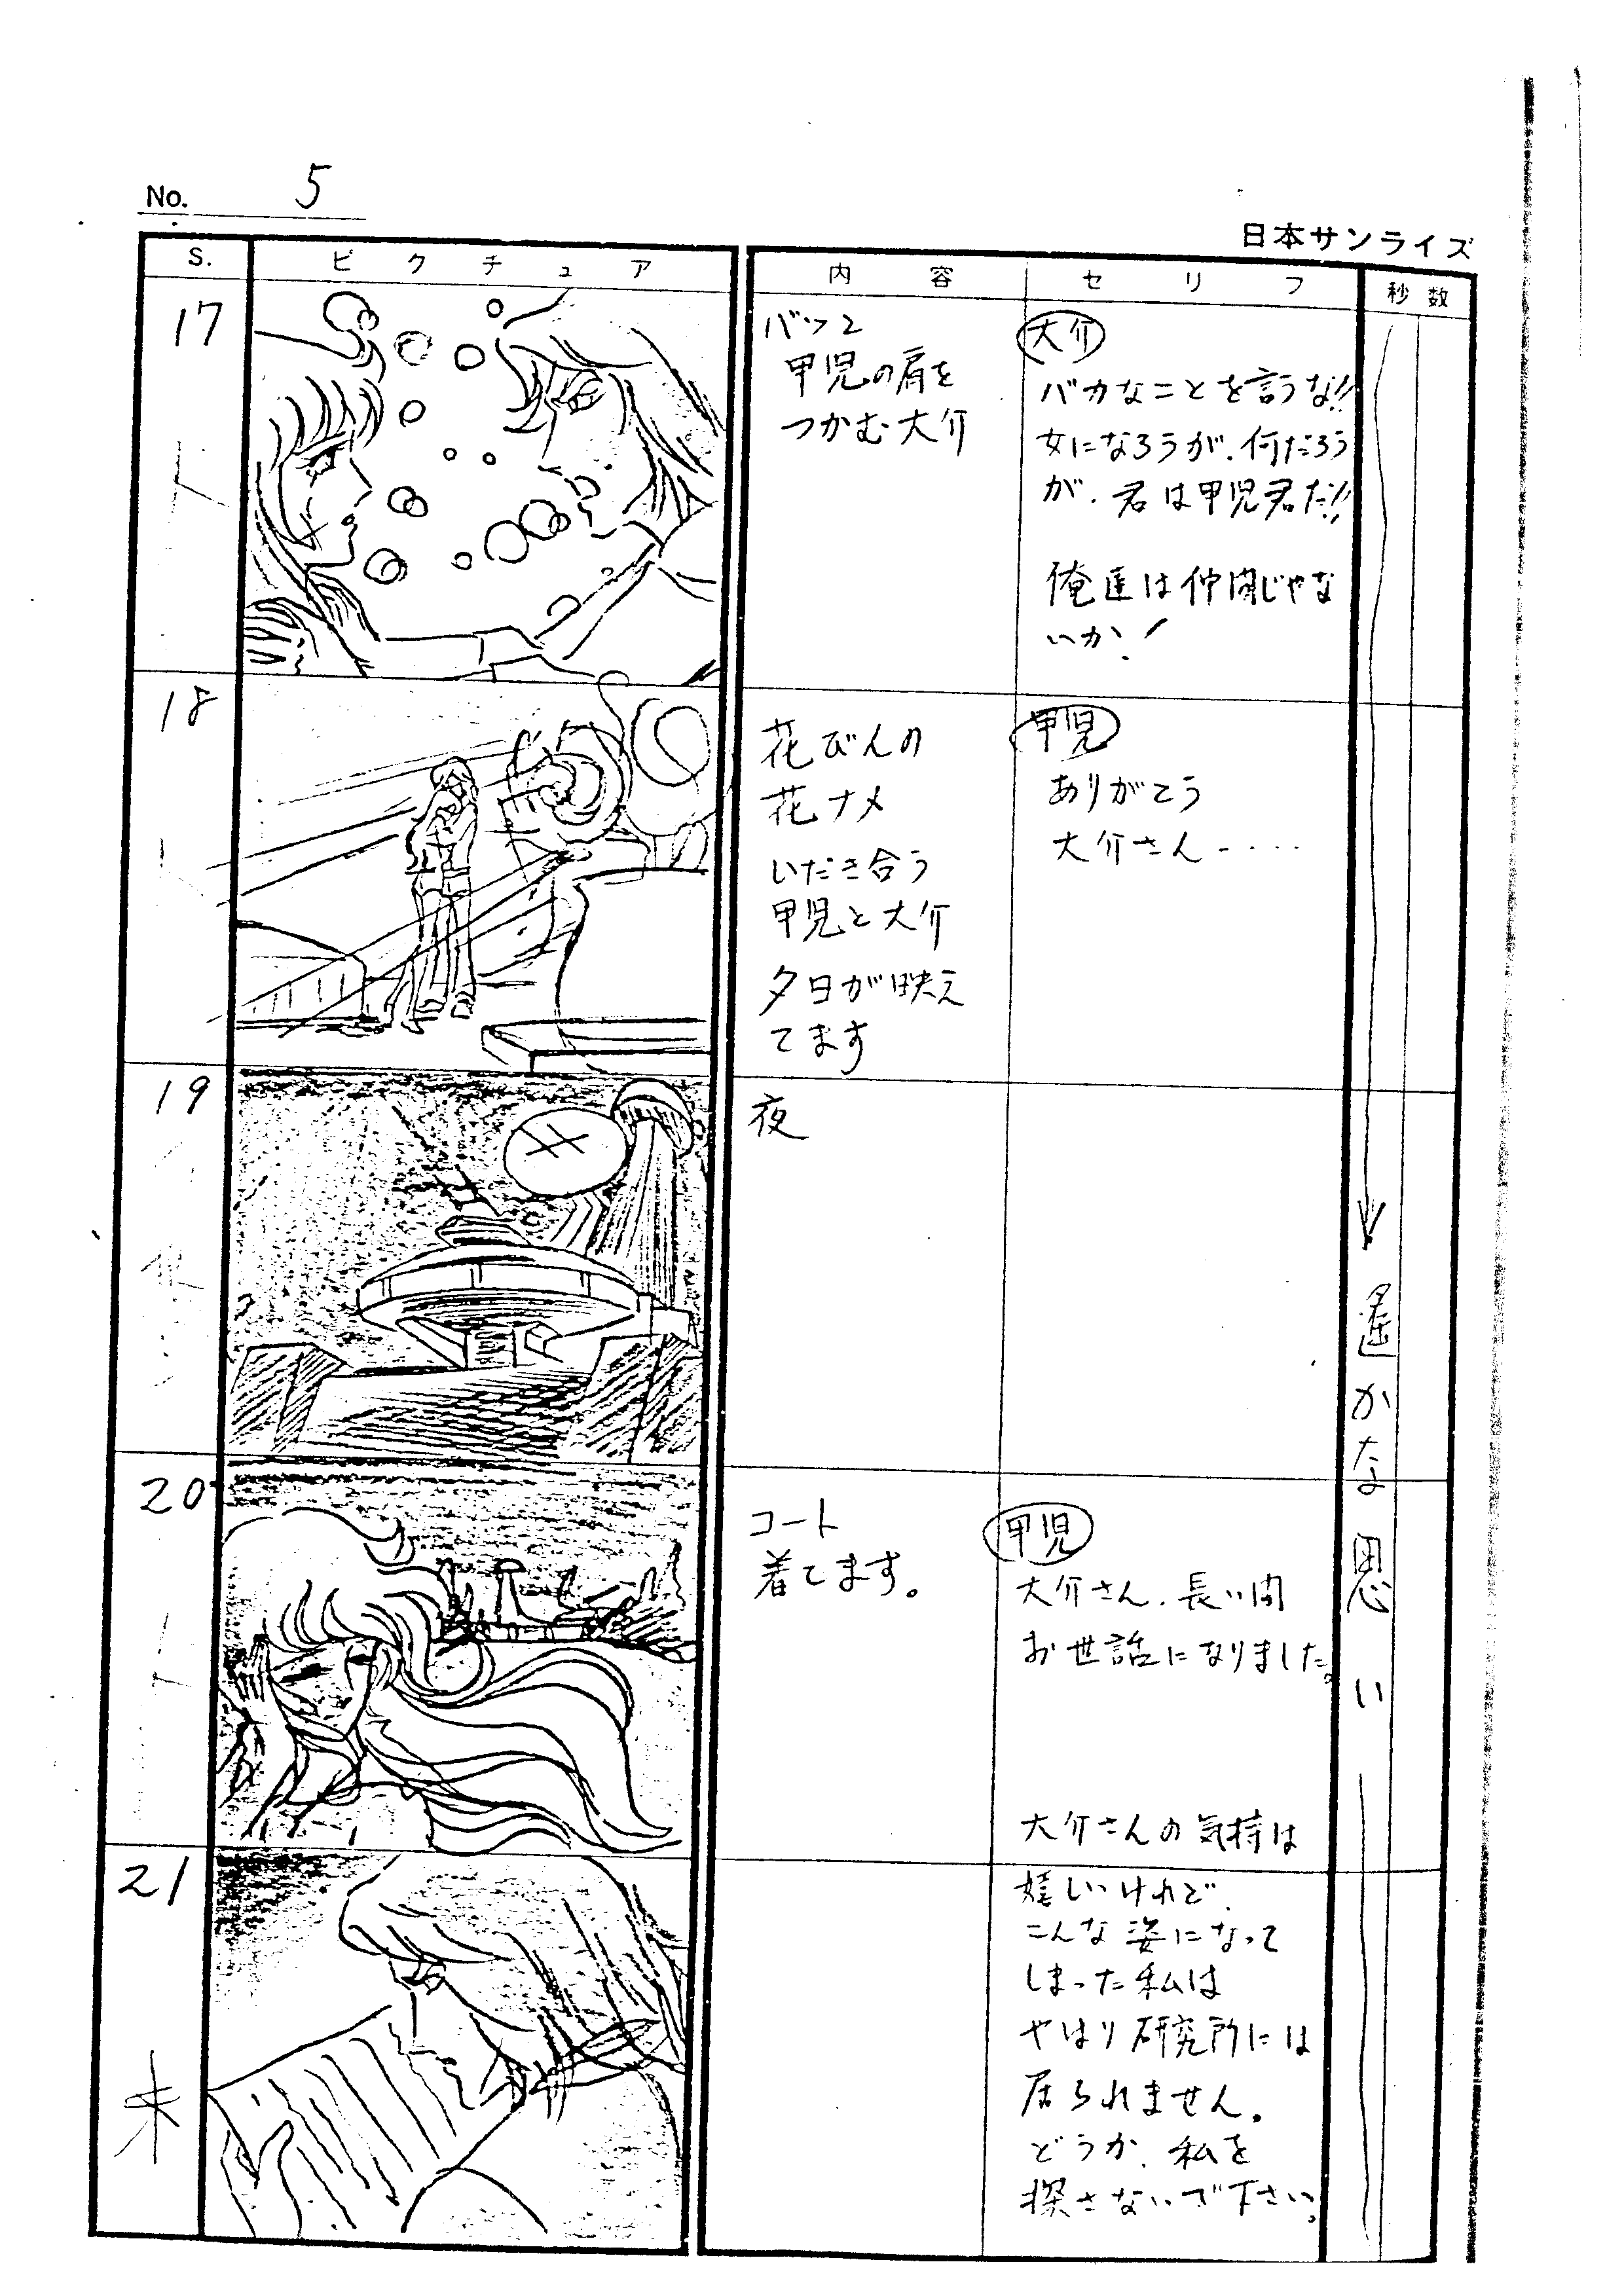 No. 5
日本サンライズ
S. ピクチュア 内容 セリフ 秒数
17
バッと
甲児の肩を
つかむ大介
大介
バカなことを言うな!!
女になろうが、何だろう
が、君は甲児君だ!!
俺達は仲間じゃな
いか!
18
花びんの
花ナメ
いだき合う
甲児と大介
夕日が映え
てます
甲児
ありがとう
大介さん‥‥
19
夜
20
コート
着てます。
甲児
大介さん、長い間
お世話になりました。
大介さんの気持は
21
嬉しいけれど、
こんな姿になって
しまった私は
やはり研究所には
居られません。
どうか、私を
探さないで下さい。
遥かな思い